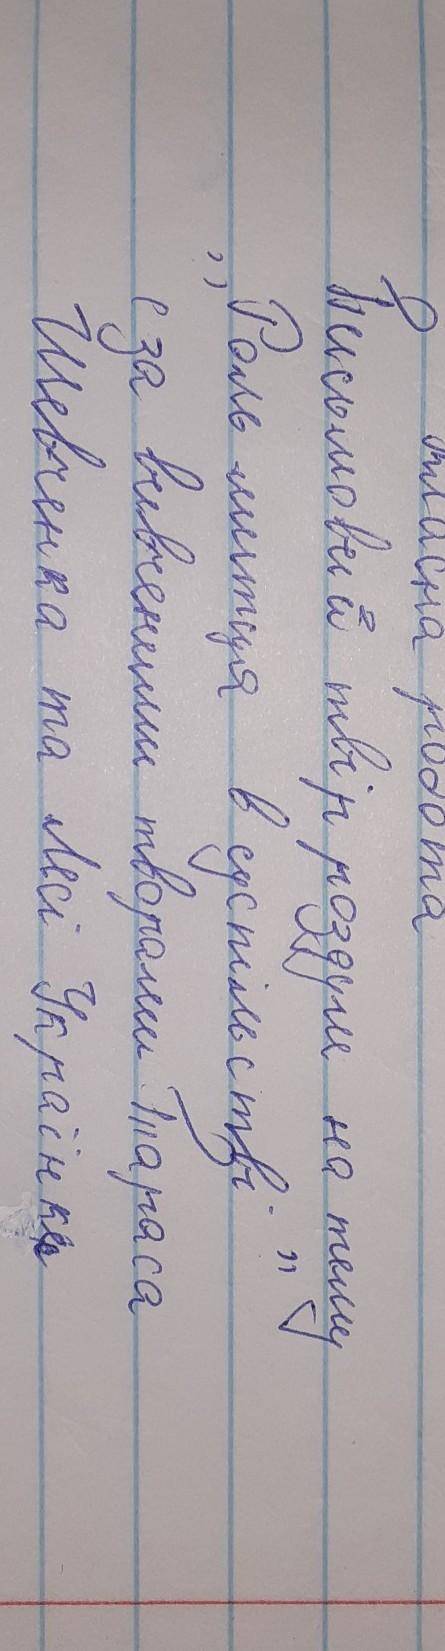 робота
Письмовий твір роздум на тему
„Роль митця в суспільстві"
(за вивченими творами Тараса
Шевченка та Лесі Українки